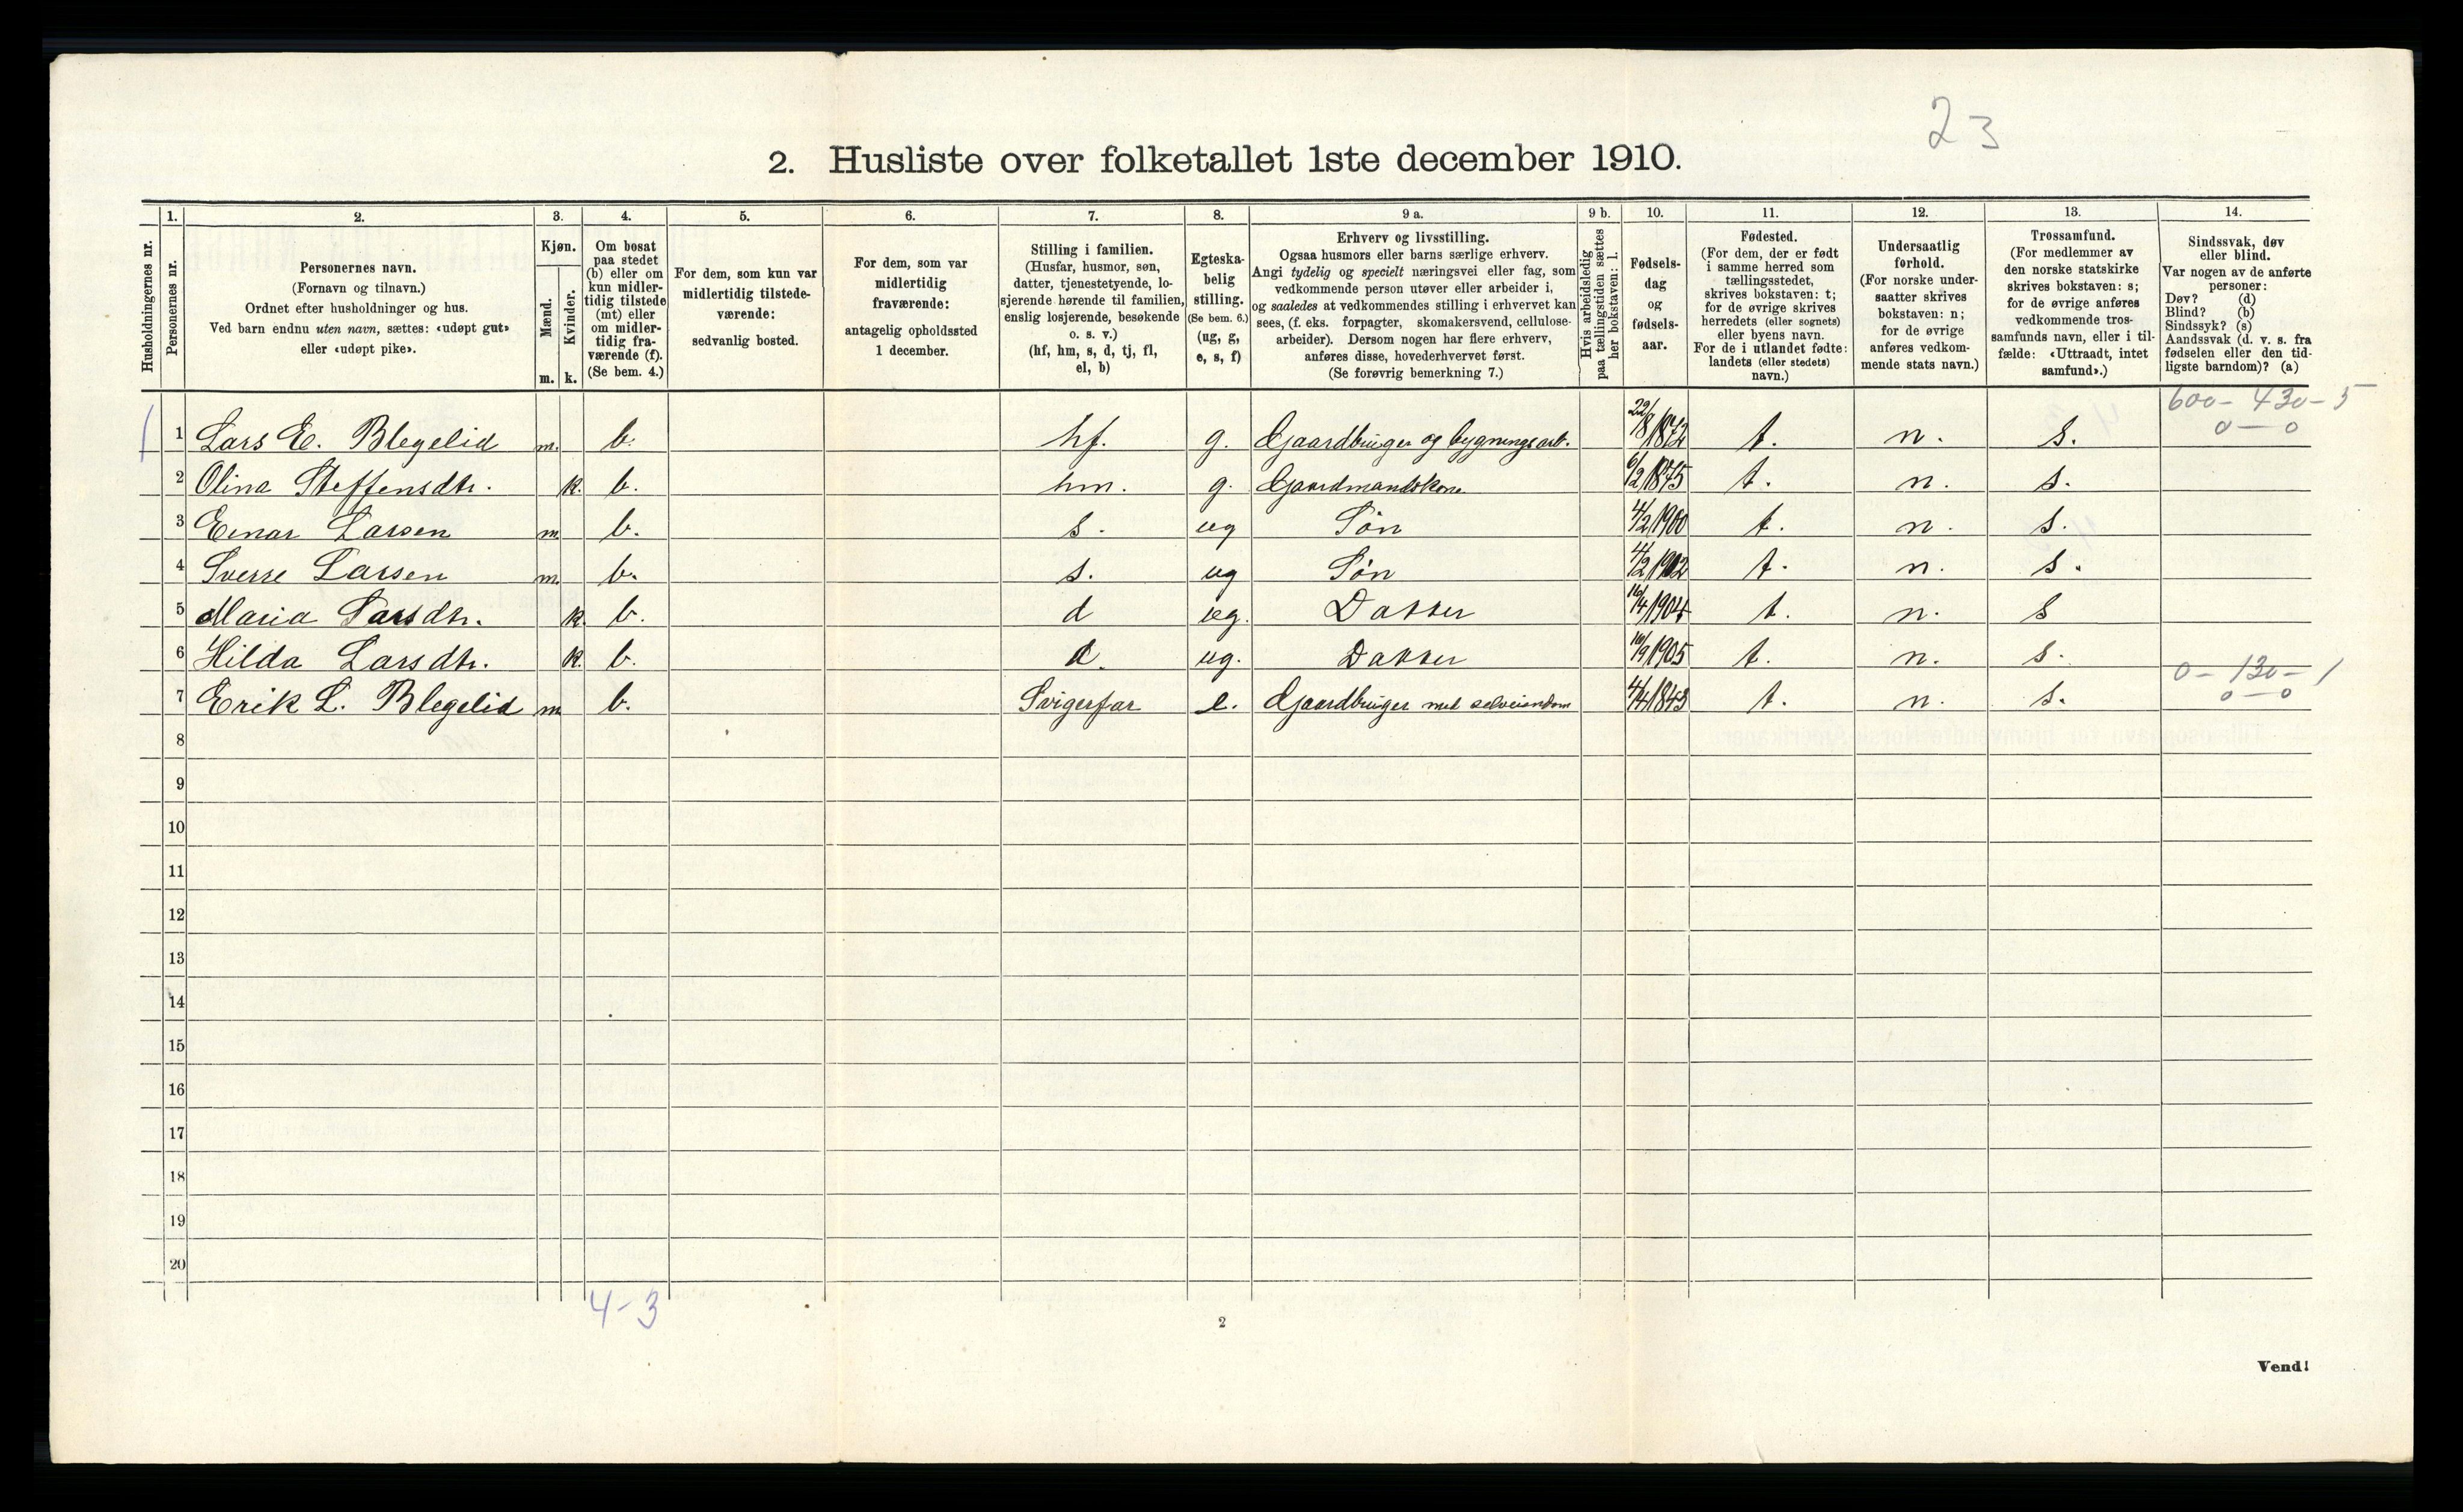 23
2. Husliste over folketallet 1ste december 1910.
1. 2. 3. 4. 5. 6. 7. 8. 9 a. 9 b. 10. 11. 12. 13. 14.
Husholdningernes nr.
Personernes nr.
Personernes navn.
(Fornavn og tilnavn.)
Ordnet efter husholdninger og hus.
Ved barn endnu uten navn, sættes: «udøpt gut»
eller «udøpt pike».
Kjøn.
Mænd.
Kvinder.
m. k.
Om bosat
paa stedet
(b) eller om
kun midler-
tidig tilstede
(mt) eller
om midler-
tidig fra-
værende (f).
(Se bem. 4.)
For dem, som kun var
midlertidig tilstede-
værende:
sedvanlig bosted.
For dem, som var
midlertidig
fraværende:
antagelig opholdssted
1 december.
Stilling i familien.
(Husfar, husmor, søn,
datter, tjenestetyende, lo-
sjerende hørende til familien,
enslig losjerende, besøkende
o. s. v.)
(hf, hm, s, d, tj, fl,
el, b)
Egteska-
belig
stilling.
(Se bem. 6.)
(ug, g,
e, s, f)
Erhverv og livsstilling.
Ogsaa husmors eller barns særlige erhverv.
Angi tydelig og specielt næringsvei eller fag, som
vedkommende person utøver eller arbeider i,
og saaledes at vedkommendes stilling i erhvervet kan
sees, (f. eks. forpagter, skomakersvend, cellulose-
arbeider). Dersom nogen har flere erhverv,
anføres disse, hovederhvervet først.
(Se forøvrig bemerkning 7.)
Hvis arbeidsledig
paa tællingstiden sættes
her bokstaven: l.
Fødsels-
dag
og
fødsels-
aar.
Fødested.
(For dem, der er født
i samme herred som
tællingsstedet,
skrives bokstaven: t;
for de øvrige skrives
herredets (eller sognets)
eller byens navn.
For de i utlandet fødte:
landets (eller stedets)
navn.)
Undersaatlig
forhold.
(For norske under-
saatter skrives
bokstaven: n;
for de øvrige
anføres vedkom-
mende stats navn.)
Trossamfund.
(For medlemmer av
den norske statskirke
skrives bokstaven: s;
for de øvrige anføres
vedkommende tros-
samfunds navn, eller i til-
fælde: «Uttraadt, intet
samfund».)
Sindssvak, døv
eller blind.
Var nogen av de anførte
personer:
Døv? (d)
Blind? (b)
Sindssyk? (s)
Aandssvak (d. v. s. fra
fødselen eller den tid-
ligste barndom)? (a)
600 - 430 - 5
0 - 0
1 Lars E. Blegelid m. b. hf. g. Gaardbruger og bygningsarb. 22/8 1872 t. n. s.
2 Olina Steffensdtr. k. b. hm. g. Gaardmandskone 6/2 1875 t. n. s.
3 Einar Larsen m. b. s. ug Søn 4/2 1900 t. n. s.
4 Sverre Larsen m. b. s. ug Søn 4/2 1902 t. n. s.
5 Maria Larsdtr. k. b. d ug. Datter 16/4 1904 t. n. s
6 Hilda Larsdtr. k. b. d. ug. Datter 1905 t. n. s.
0 - 130 - 1
0 - 0
7 Erik L. Blegelid m b. Svigerfar e. Gaardbruger med selveiendom 4/4 1843 t. n. s.
8
9
10
11
12
13
14
15
16
17
18
19
20
4-3
2
Vend!